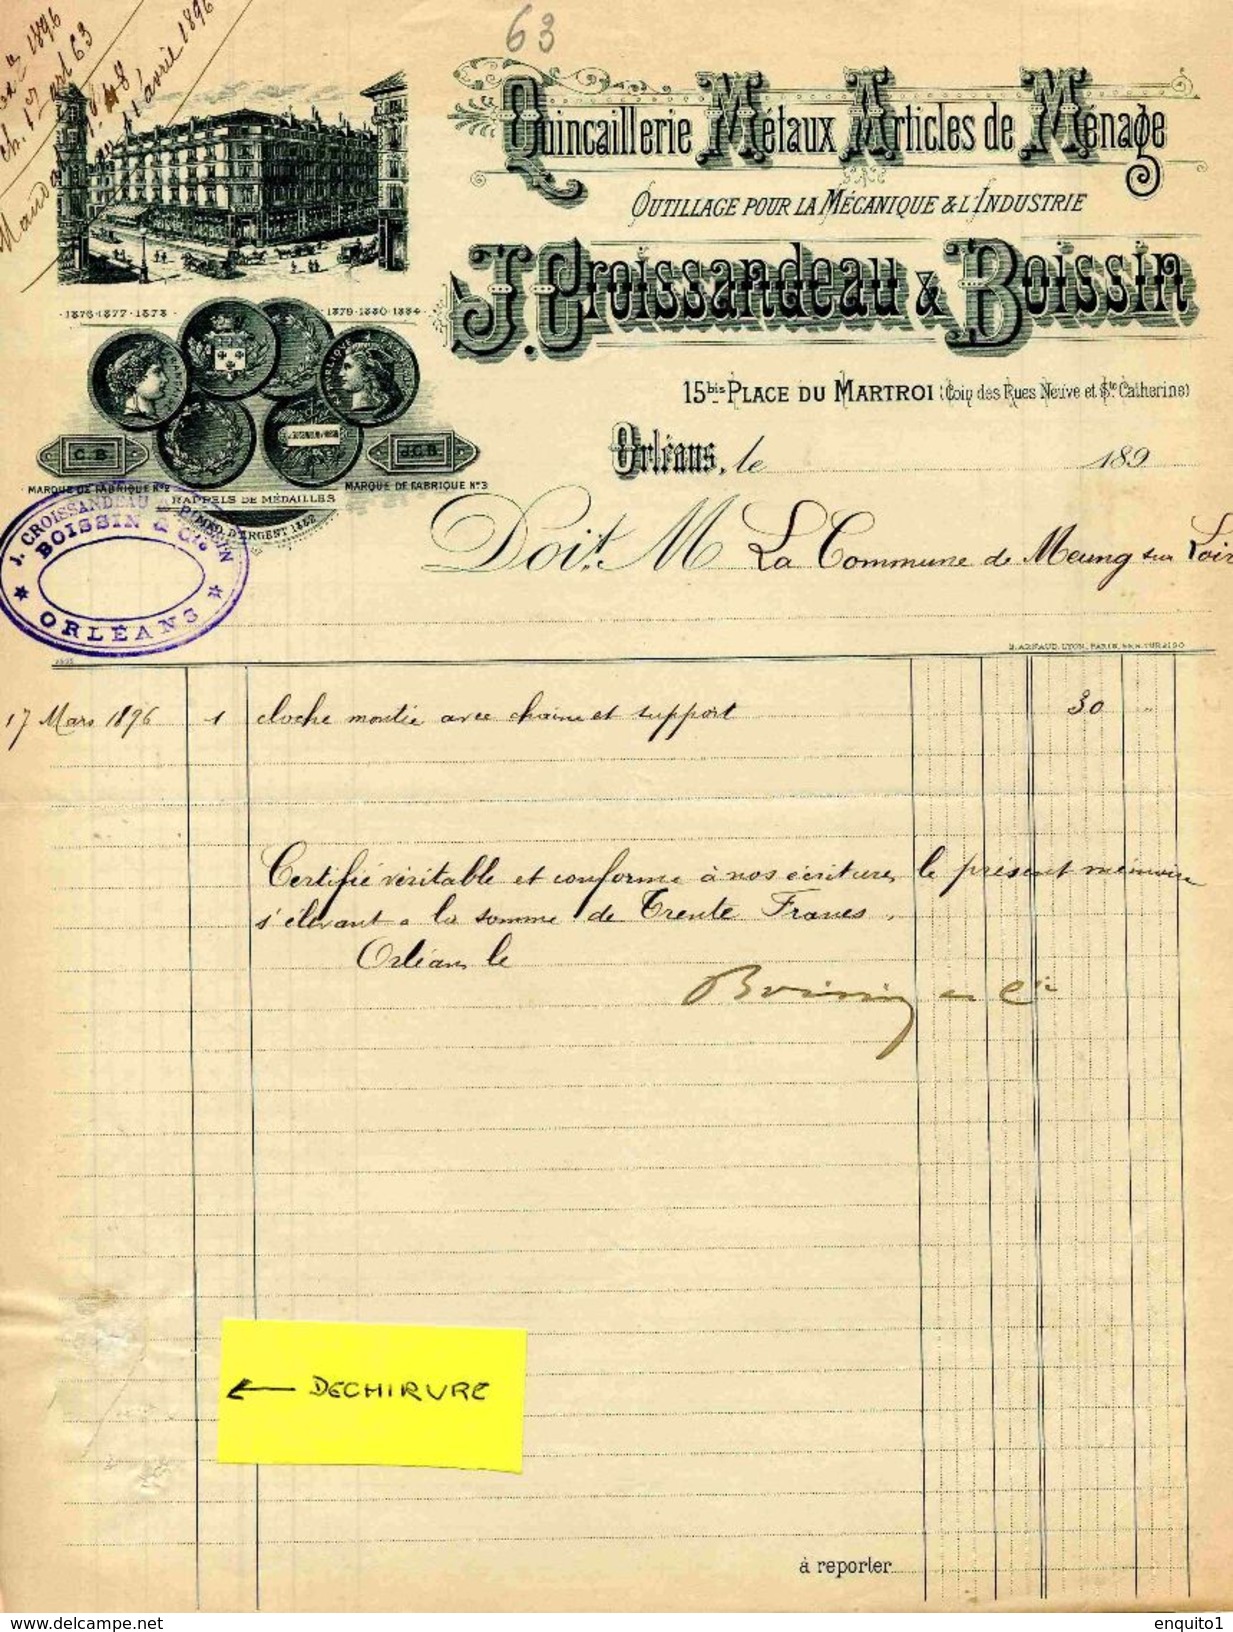 63
1896
ch. 1er art 63
Mandat
11 avril 1896
Quincaillerie Métaux Articles de Ménage
OUTILLAGE POUR LA MÉCANIQUE & L'INDUSTRIE
J. Croissandeau & Boissin
15bis PLACE DU MARTROI (Coin des Rues Neuve et Ste Catherine)
Orléans, le 189
1876·1877·1878· 1879·1880·1884·
C. B. J.C.B.
MARQUE DE FABRIQUE No2 RAPPELS DE MÉDAILLES MARQUE DE FABRIQUE No3
D'ARGENT 1882
J. CROISSANDEAU
BOISSIN & Cie
ORLÉANS
Doit M La Commune de Meung sur Loir
B. ARNAUD, LYON, PARIS
17 Mars 1896 1 cloche montée avec chaine et support 30 "
Certifié véritable et conforme à nos écritures le présent mémoire
s'élevant a la somme de Trente Francs.
Orléans le
Boissin et Cie
← DECHIRURE
à reporter
delcampe.net
enquito1